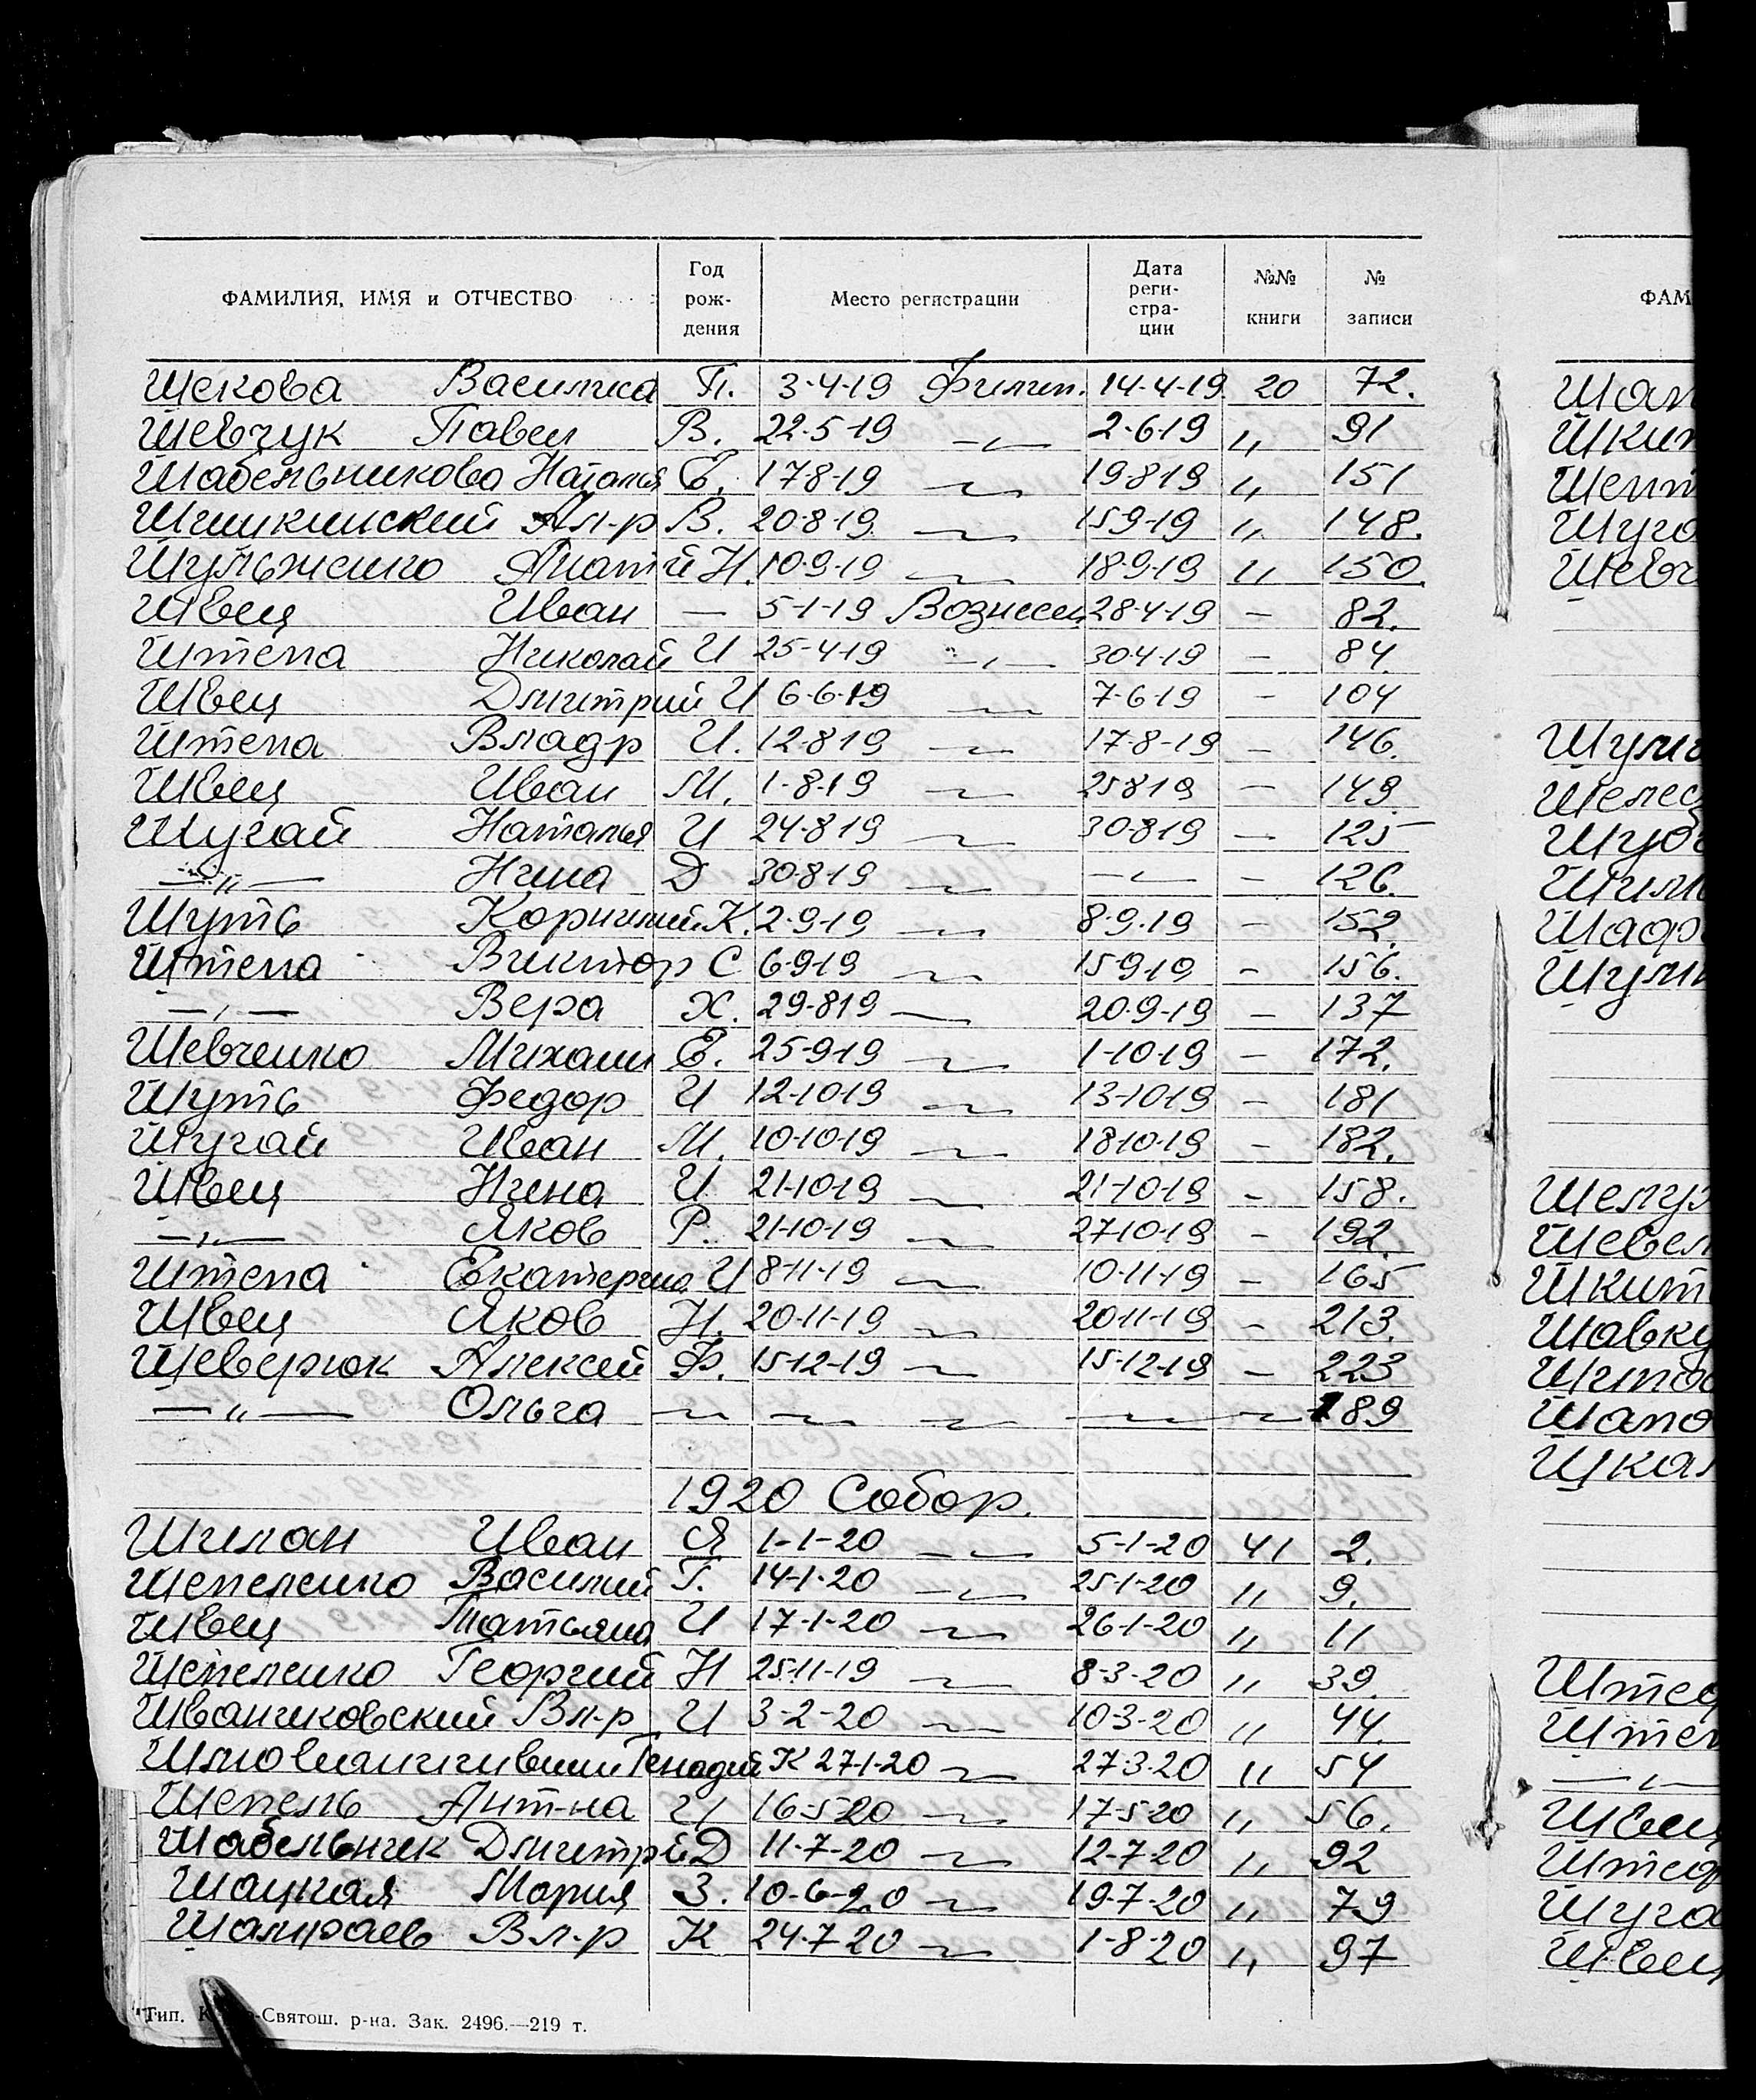 ФАМИЛИЯ, ИМЯ и ОТЧЕСТВО Год рож-дения Место регистрации Дата реги-стра-ции №№ книги № записи
Шекова Василиса П. 3-4-19 Филип. 14-4-19 20 72.
Шевчук Павел В. 22-5-19 -〃- 2-6-19 〃 91
Шабельникова Наталья Е. 17-8-19 〃 19-8-19 〃 151
Шишкинский Ал-р В. 20-8-19 〃 15-9-19 〃 148.
Шульженко Анатий Н. 10-9-19 〃 18-9-19 〃 150.
Швец Иван — 5-1-19 Вознесен 28-4-19 - 82.
Штепа Николай И 25-4-19 -〃- 30-4-19 - 84
Швец Дмитрий И 6-6-19 〃 7-6-19 - 104
Штепа Владр И. 12-8-19 〃 17-8-19 - 146.
Швец Иван М. 1-8-19 〃 25-8-19 - 149
Шугай Наталья И 24-8-19 〃 30-8-19 - 125
-〃- Нина D 30-8-19 〃 -〃- - 126.
Шуть Корнилий К. 2-9-19 〃 8-9-19 - 152.
Штепа Виктор С 6-9-19 〃 15-9-19 - 156.
-〃- Вера Х. 29-8-19 〃 20-9-19 - 137
Шевченко Михаил Е. 25-9-19 〃 1-10-19 - 172.
Шуть Федор И 12-10-19 〃 13-10-19 - 181
Шугай Иван М. 10-10-19 〃 18-10-19 - 182.
Швец Нина И 21-10-19 〃 21-10-19 - 158.
-〃- Яков Р. 21-10-19 〃 27-10-19 - 192.
Штепа Екатерина И 8-11-19 〃 10-11-19 - 165
Швец Яков Н. 20-11-19 〃 20-11-19 - 213.
Шеверюк Алексей Ф. 15-12-19 〃 15-12-19 - 223
-〃- Ольга 〃 〃 〃 〃 〃 189
1920 Собор.
Шилан Иван Я 1-1-20 -〃- 5-1-20 41 2.
Шепеленко Василий Г. 14-1-20 -〃- 25-1-20 〃 9.
Швец Татьяна И 17-1-20 〃 26-1-20 〃 11
Шепеленко Георгий Н 25-11-19 〃 8-3-20 〃 39
Шванчиковский Вл-р И 3-2-20 〃 10-3-20 〃 44.
Генадий К 27-1-20 〃 27-3-20 〃 54
Шепель Ант-на И 16-5-20 〃 17-5-20 〃 56.
Шабельник Дмитрий D 11-7-20 〃 12-7-20 〃 92
Шацкая Мария З. 10-6-20 〃 19-7-20 〃 79
Шапраев Вл-р К 24-7-20 〃 1-8-20 〃 97
Тип. -Святош. р-на. Зак. 2496.—219 т.